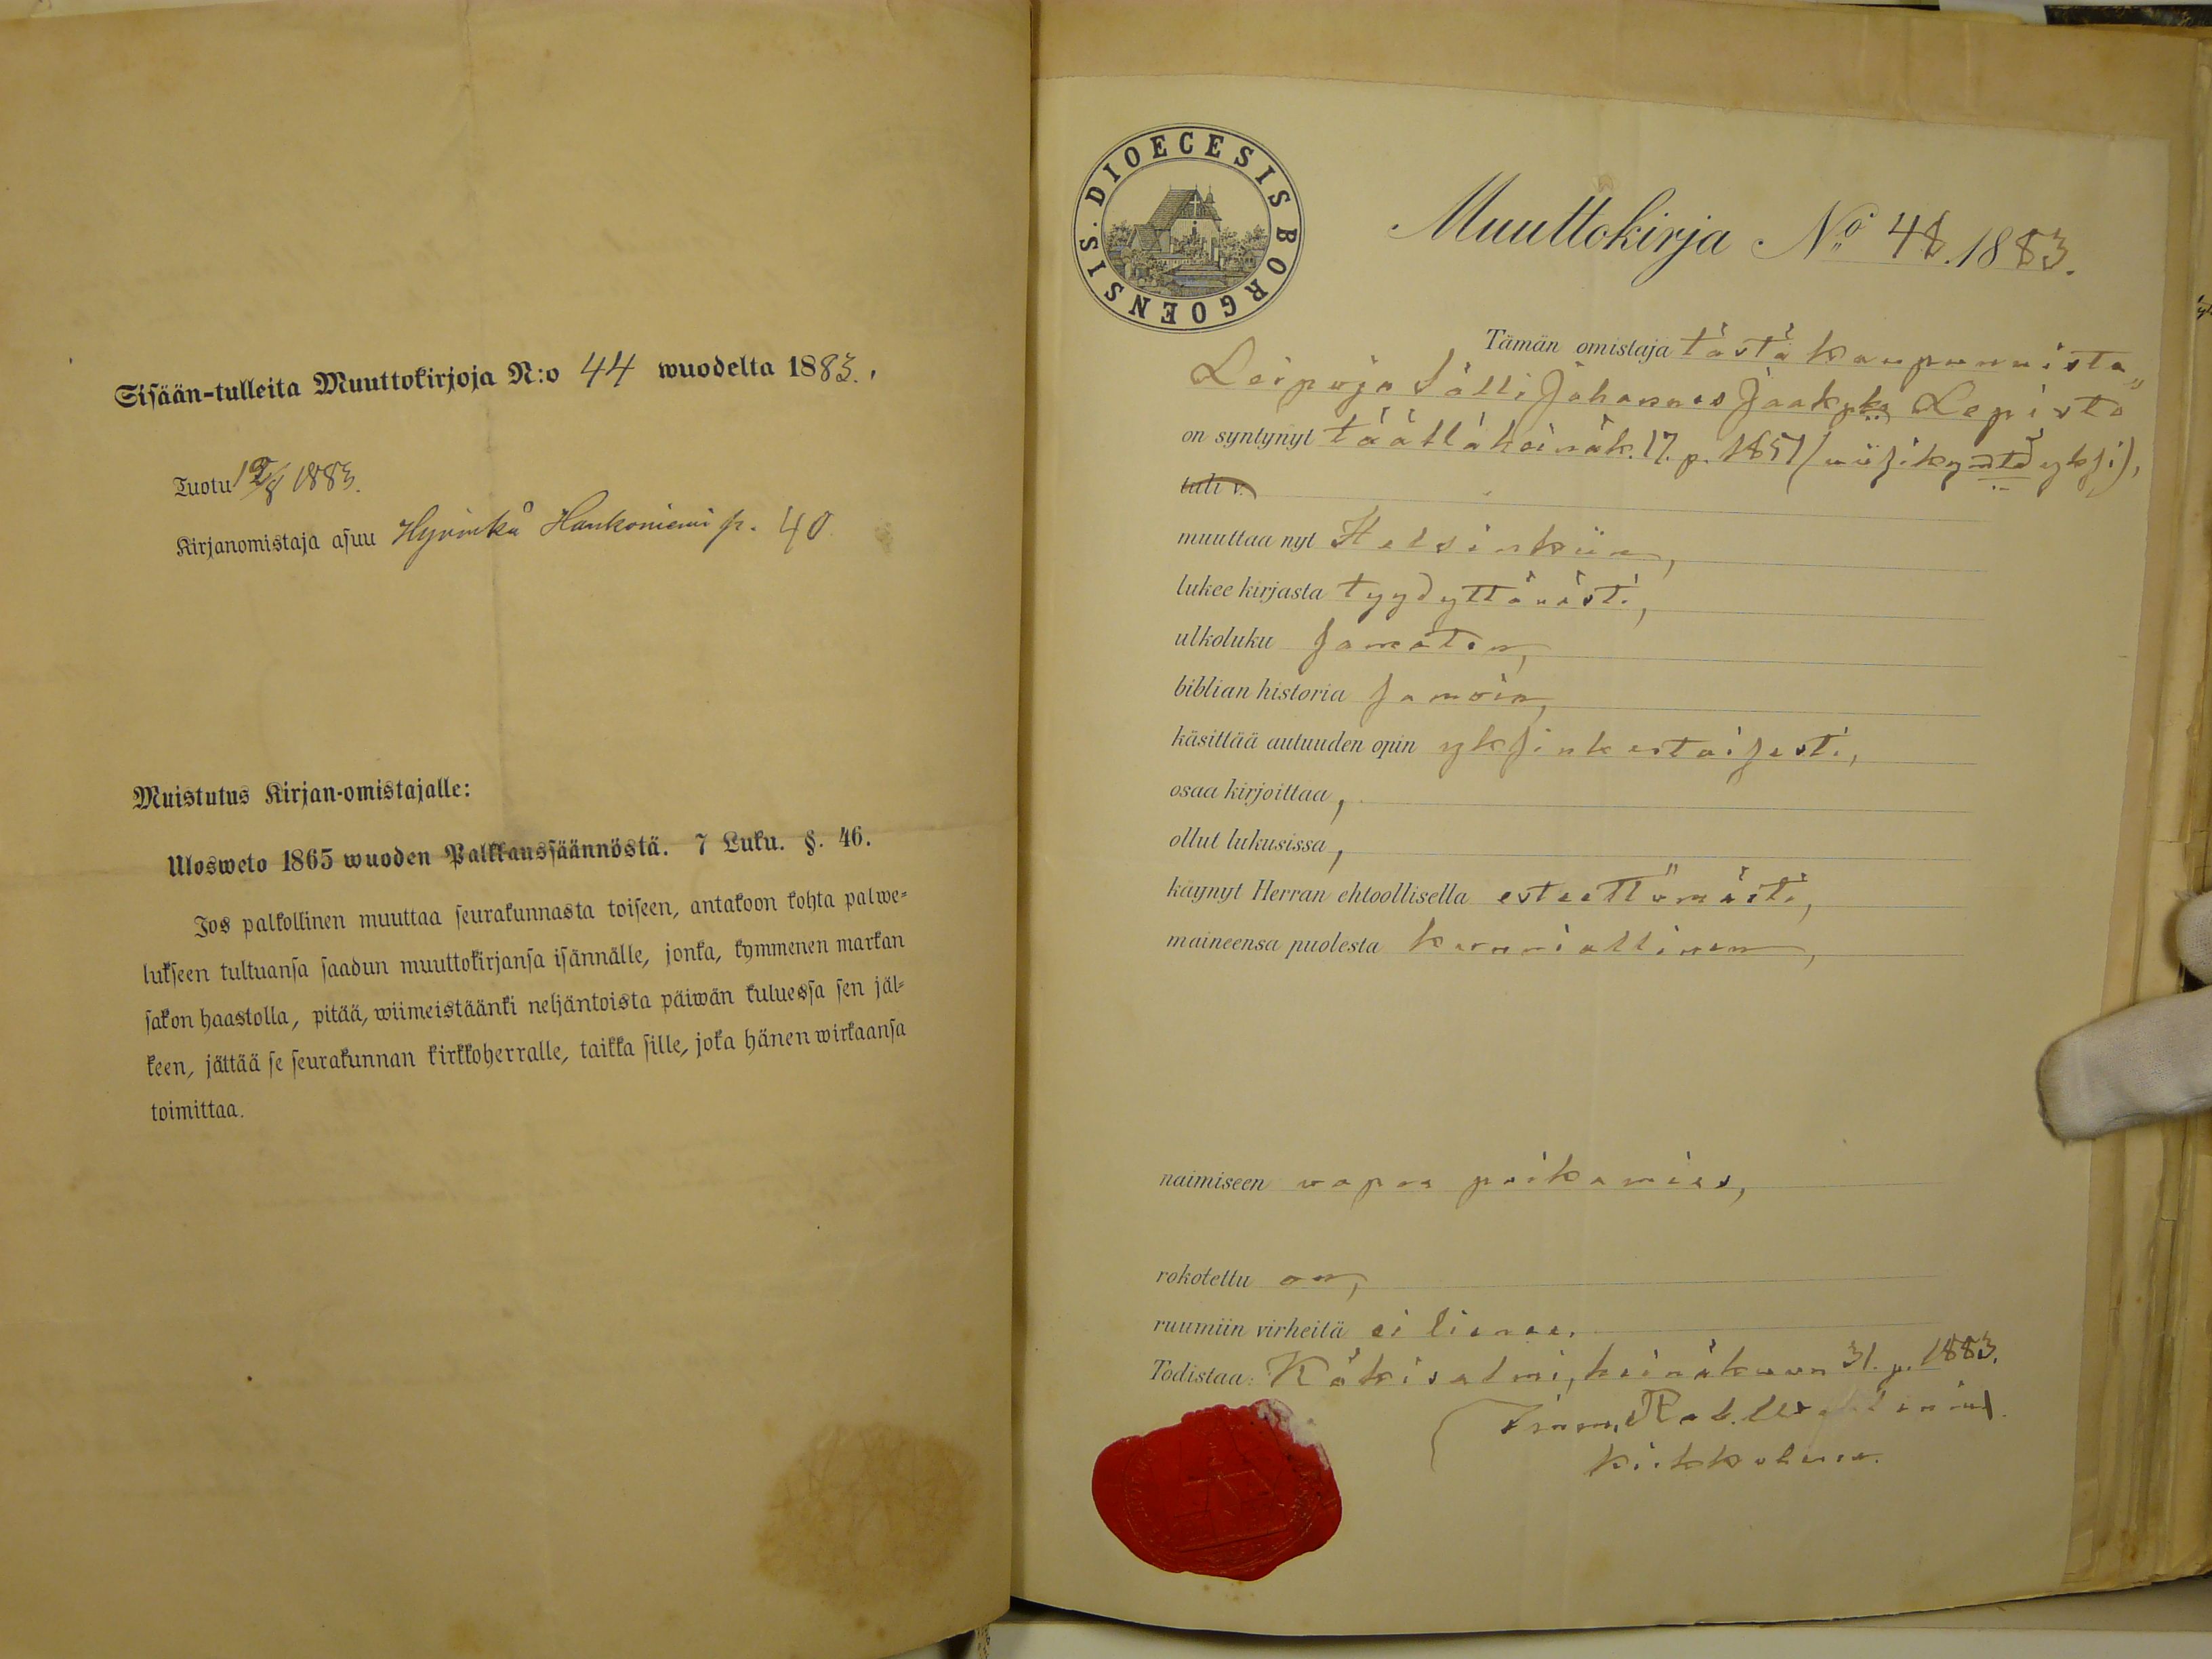 Sisään-tulleita Muuttokirjoja N:o 44 wuodelta 1883.
Tuotu 12/8 1883.
Kirjanomistaja asuu Hyvinkä Hankoniemi p. 40
Muistutus Kirjan-omistajalle:
Ulosweto 1865 wuoden Palkkaussäännöstä. 7 Luku. §. 46.
Jos palkollinen muuttaa seurakunnasta toiseen, antakoon kohta palwe-
lukseen tultuansa saadun muuttokirjansa isännälle, jonka, kymmenen markan
sakon haastolla, pitää, wiimeistäänki neljäntoista päiwän kuluessa sen jäl-
keen, jättää se seurakunnan kirkkoherralle, taikka sille, joka hänen wirkaansa
toimittaa.
DIOECESIS BORGOENSIS.
Muuttokirja No 48. 1883.
Tämän omistaja tästä kaupunnista
Leipuja Sälli Johannes Jaakp:ka Lepistö
on syntynyt täällä heinäk. 17. p. 1851 (wiisikymtä yksi),
tuli v.
muuttaa nyt Helsinkiin,
lukee kirjasta tyydyttäwästi,
ulkoluku samaten,
biblian historia samoin,
käsittää autuuden opin yksinkertaisesti,
osaa kirjoittaa,
ollut lukusissa,
käynyt Herran ehtoollisella esteettömästi,
maineensa puolesta kunniallinen,
naimiseen vapaa poikamies,
rokotettu on,
ruumiin virheitä ei lienee.
Todistaa: Käkisalmi, heinäkuun 31. p. 1883.
kirkkoherra.